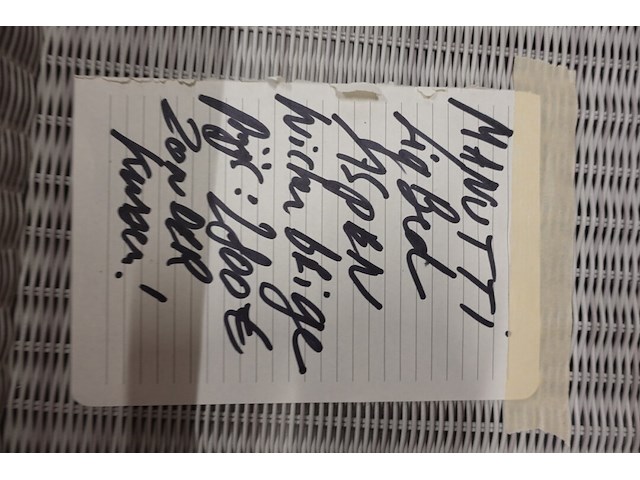 MANUTTI
LigBed
ASPEN
Wicker beige
Prijs: 2800 €
ZONDER
kussen.!